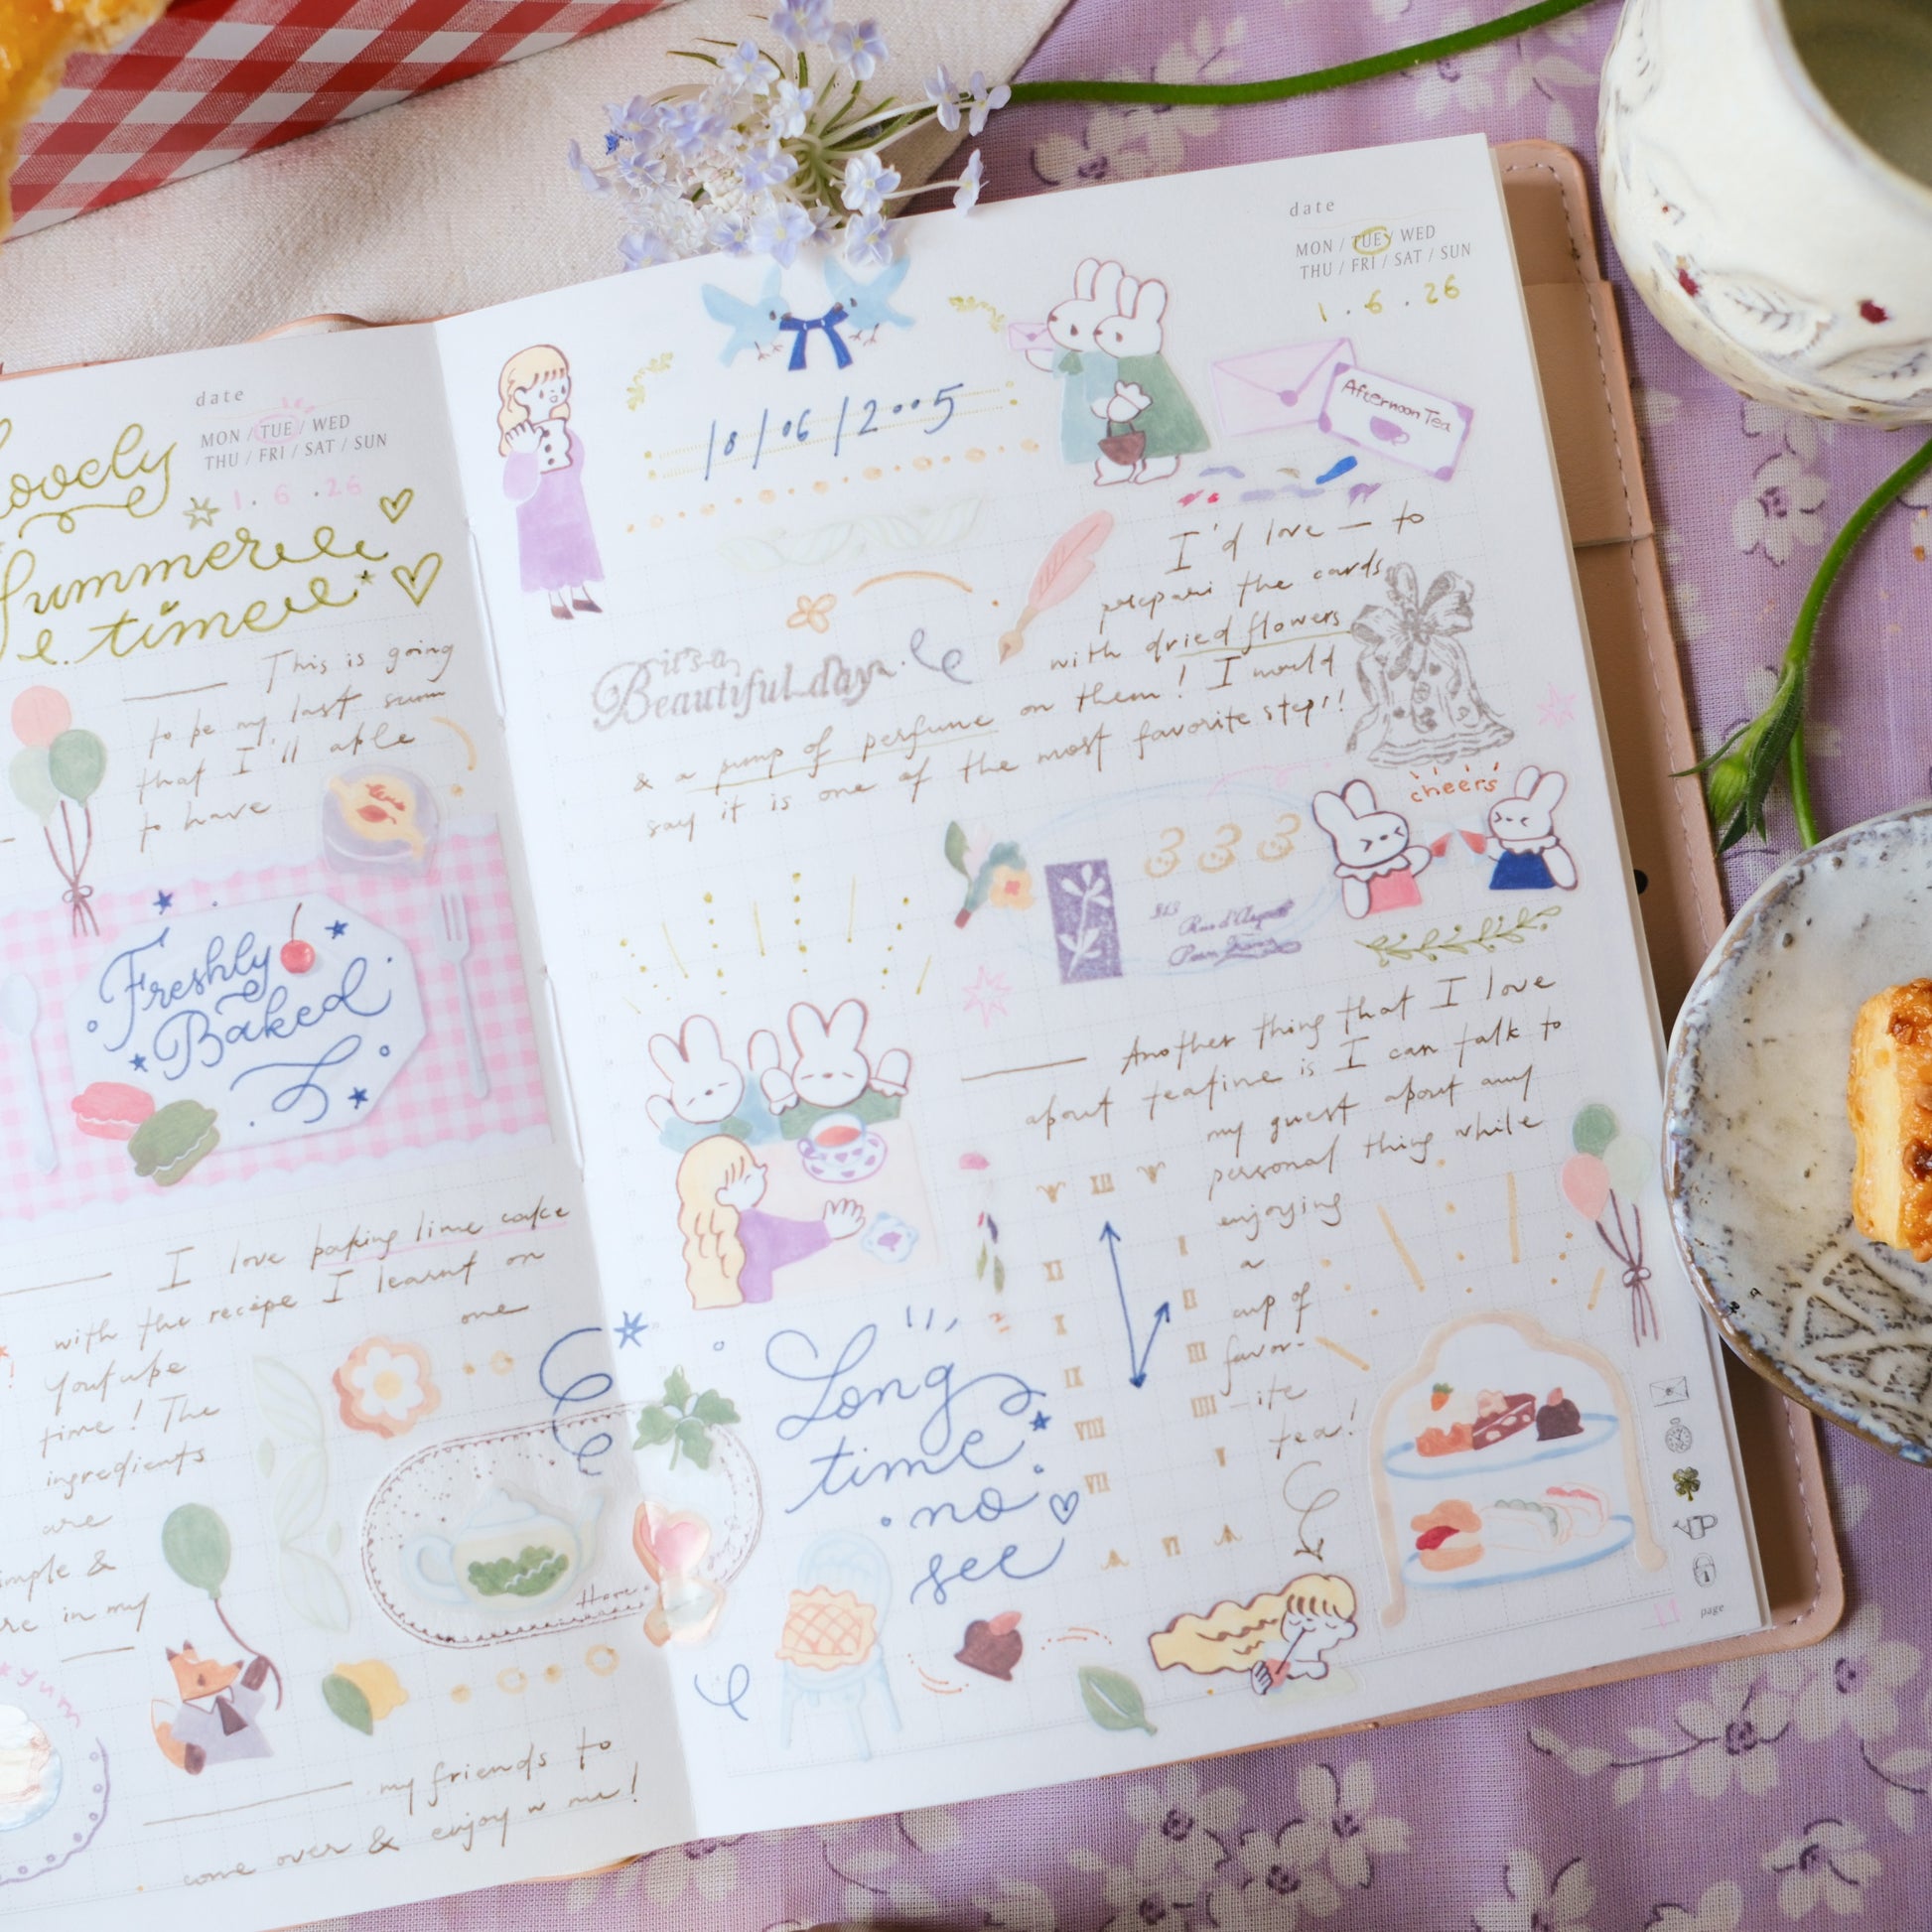 Lovely
Summer
time
date
MON / TUE / WED
THU / FRI / SAT / SUN
1.6.26
This is going
to be my last summ
that I'll able
to have
Freshly
Baked
I love baking lime cake
with the recipe I learnt on
Youtube one
time! The
ingredients
are
simple &
are in my
yum
my friends to
come over & enjoy w me!
date
MON / TUE / WED
THU / FRI / SAT / SUN
1.6.26
Afternoon Tea
it's a
Beautiful day
I'd love — to
prepare the cards
with dried flowers
& a pump of perfume on them! I would
say it is one of the most favorite step!!
cheers
333
Another thing that I love
about teatime is I can talk to
my guest about any
personal thing while
enjoying
a
cup of
favor-
ite
tea!
XII
I
II
III
IIII
V
VI
VII
VIII
IX
X
XI
Long
time
no
see
page